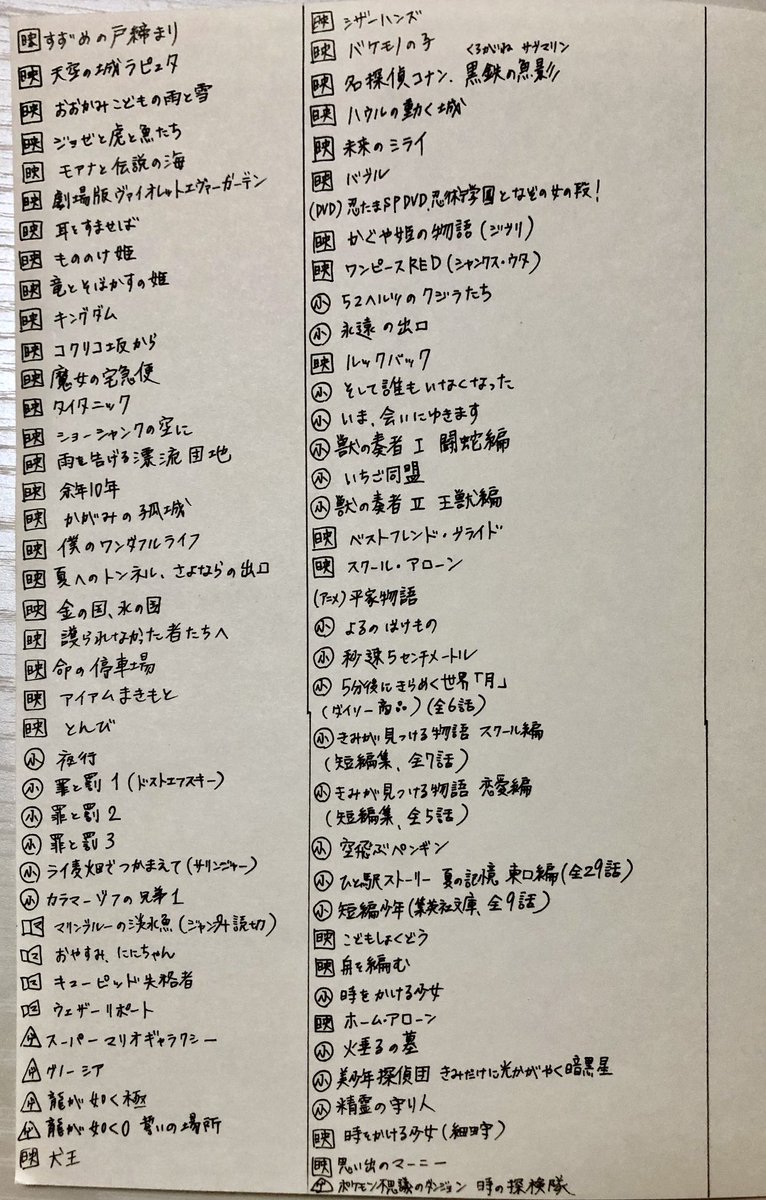 映 すずめの戸締まり
映 天空の城ラピュタ
映 おおかみこどもの雨と雪
映 ジョゼと虎と魚たち
映 モアナと伝説の海
映 劇場版 ヴァイオレットエヴァーガーデン
映 耳をすませば
映 もののけ姫
映 竜とそばかすの姫
映 キングダム
映 コクリコ坂から
映 魔女の宅急便
映 タイタニック
映 ショーシャンクの空に
映 雨を告げる漂流団地
映 余命10年
映 かがみの孤城
映 僕のワンダフルライフ
映 夏へのトンネル、さよならの出口
映 金の国、水の国
映 護られなかった者たちへ
映 命の停車場
映 アイアムまきもと
映 とんび
小 夜行
小 罪と罰 1 (ドストエフスキー)
小 罪と罰 2
小 罪と罰 3
小 ライ麦畑でつかまえて (サリンジャー)
小 カラマーゾフの兄弟 1
マ マリンブルーの淡水魚 (ジャンプ+読切)
マ おやすみ、ににちゃん
マ キューピッド失格者
マ ウェザーリポート
ゲ スーパーマリオギャラクシー
ゲ グノーシア
ゲ 龍が如く極
ゲ 龍が如く0 誓いの場所
映 犬王
映 シザーハンズ
映 バケモノの子
くろがね サブマリン
映 名探偵コナン、黒鉄の魚影
映 ハウルの動く城
映 未来のミライ
映 バブル
(DVD) 忍たまSPDVD、忍術学園となぞの女の段!
映 かぐや姫の物語 (ジブリ)
映 ワンピースRED (シャンクス・ウタ)
小 52ヘルツのクジラたち
小 永遠の出口
映 ルックバック
小 そして誰もいなくなった
小 いま、会いにゆきます
小 獣の奏者 I 闘蛇編
小 いちご同盟
小 獣の奏者 II 王獣編
映 ベストフレンド・ブライド
映 スクール・アローン
(アニメ) 平家物語
小 よるのばけもの
小 秒速5センチメートル
小 5分後にきらめく世界「月」
(ダイソー商品) (全6話)
小 きみが見つける物語 スクール編
(短編集、全7話)
小 きみが見つける物語 恋愛編
(短編集、全5話)
小 空飛ぶペンギン
小 ひと駅ストーリー 夏の記憶 東口編 (全29話)
小 短編少年 (集英社文庫、全9話)
映 こどもしょくどう
映 舟を編む
小 時をかける少女
映 ホーム・アローン
小 火垂るの墓
小 美少年探偵団 きみだけに光かがやく暗黒星
小 精霊の守り人
映 時をかける少女 (細田守)
映 思い出のマーニー
ゲ ポケモン不思議のダンジョン 時の探検隊